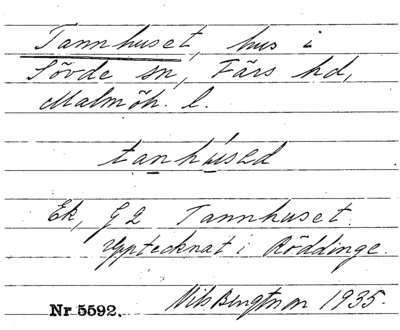 Tannhuset, hus i
Sövde sn, Färs hd,
Malmöh. l.
Ek, G 2 Tannhuset.
Upptecknat i Röddinge.
Nils Bengtson 1935.
Nr 5592.